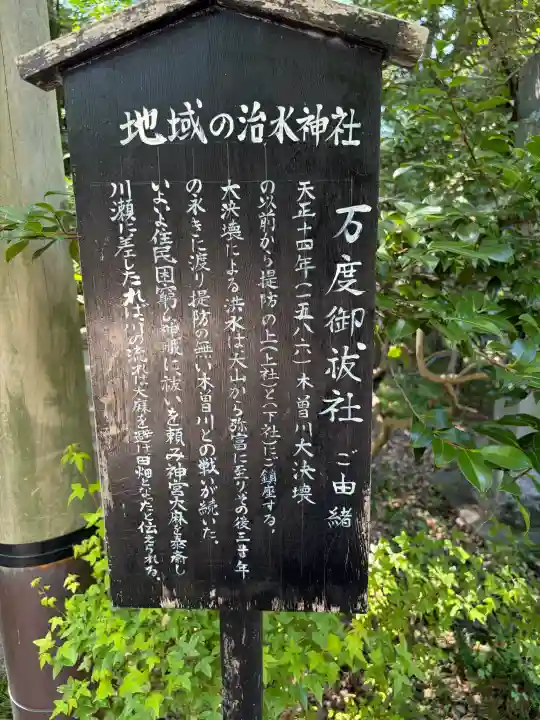 地域の治水神社
万度御祓社 ご由緒
天正十四年(一五八六)木曽川大決壊
の以前から堤防の上(上社)と(下社)にご鎮座する。
大決壊による洪水は犬山から弥富に至りその後三十年
の永きに渡り堤防の無い木曽川との戦いが続いた。
いよいよ住民困窮し神職に祓いを頼み神宮大麻を奉斎し
川瀬に差したれば川の流れは大麻を避け田畑となたと伝えられる。